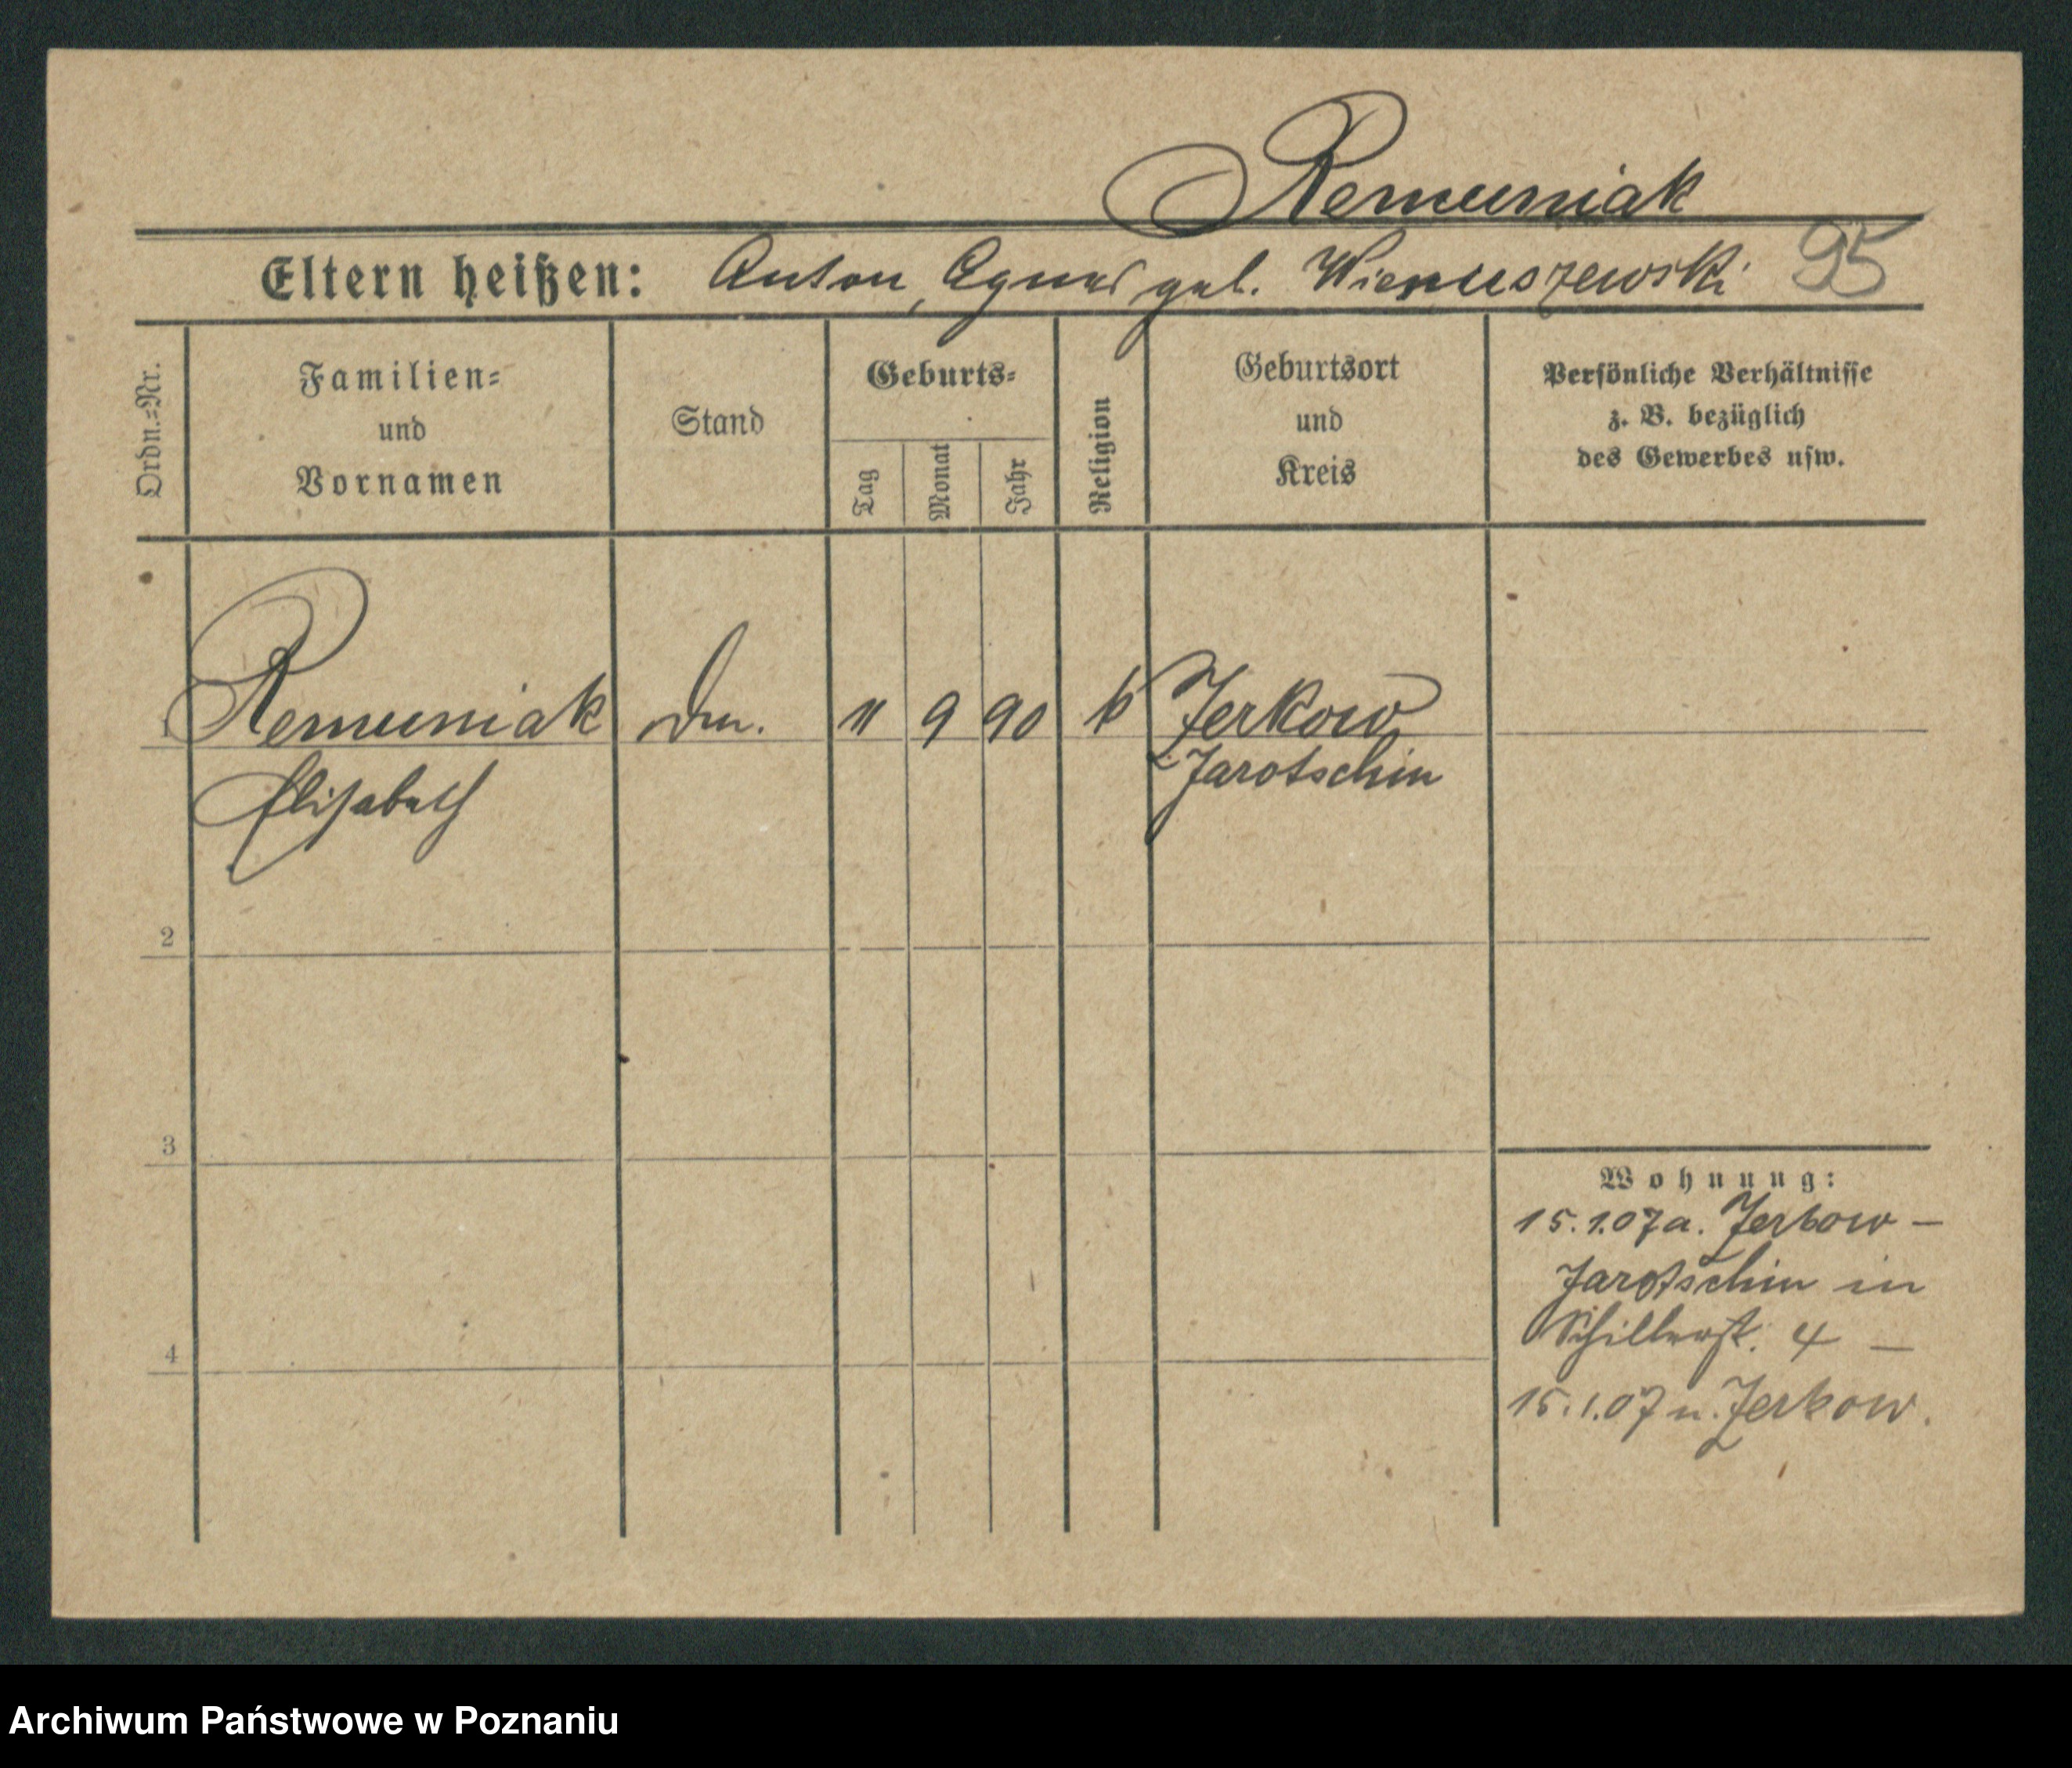 Remuniak
Eltern heißen: Anton, Agnes geb. Wienuszewski 95
Ordn.=Nr.
Familien=
und
Vornamen
Stand
Geburts=
Tag
Monat
Jahr
Religion
Geburtsort
und
Kreis
Persönliche Verhältnisse
z. B. bezüglich
des Gewerbes usw.
1 Remuniak 11 9 90 k Zerkow
Elisabeth Jarotschin
2
3
4
Wohnung:
15.1.07 a. Zerkow –
Jarotschin in
Schillerst. 4 –
15.1.07 n. Zerkow.
Archiwum Państwowe w Poznaniu